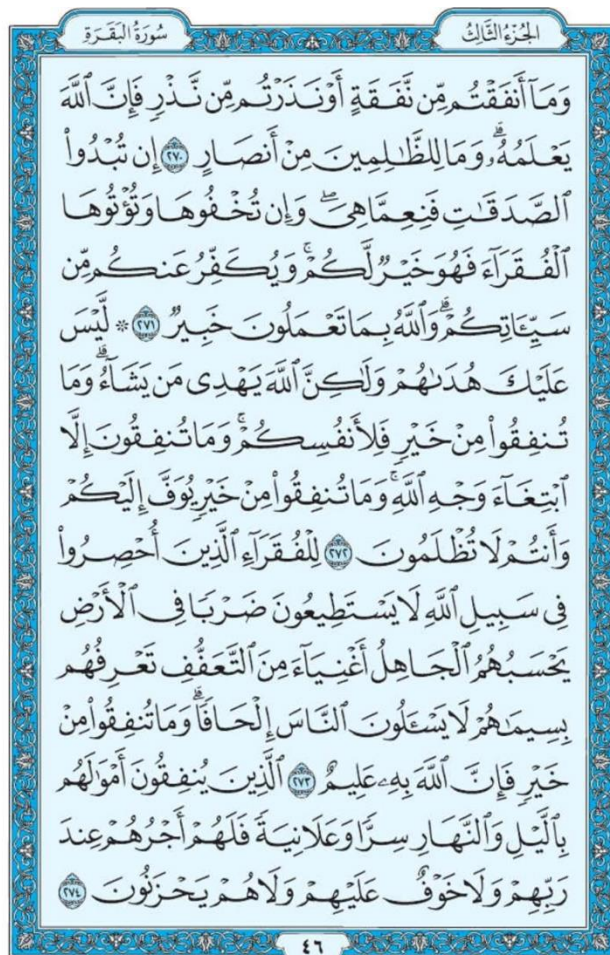 الجُزْءُ الثَّالِثُ سُورَةُ البَقَرَةِ
وَمَآ أَنفَقْتُم مِّن نَّفَقَةٍ أَوْ نَذَرْتُم مِّن نَّذْرٍ فَإِنَّ ٱللَّهَ
يَعْلَمُهُۥۗ وَمَا لِلظَّٰلِمِينَ مِنْ أَنصَارٍ ٢٧٠ إِن تُبْدُوا۟
ٱلصَّدَقَٰتِ فَنِعِمَّا هِىَۖ وَإِن تُخْفُوهَا وَتُؤْتُوهَا
ٱلْفُقَرَآءَ فَهُوَ خَيْرٌ لَّكُمْۚ وَيُكَفِّرُ عَنكُم مِّن
سَيِّـَٔاتِكُمْۗ وَٱللَّهُ بِمَا تَعْمَلُونَ خَبِيرٌ ٢٧١ * لَّيْسَ
عَلَيْكَ هُدَىٰهُمْ وَلَٰكِنَّ ٱللَّهَ يَهْدِى مَن يَشَآءُۗ وَمَا
تُنفِقُوا۟ مِنْ خَيْرٍ فَلِأَنفُسِكُمْۚ وَمَا تُنفِقُونَ إِلَّا
ٱبْتِغَآءَ وَجْهِ ٱللَّهِۚ وَمَا تُنفِقُوا۟ مِنْ خَيْرٍ يُوَفَّ إِلَيْكُمْ
وَأَنتُمْ لَا تُظْلَمُونَ ٢٧٢ لِلْفُقَرَآءِ ٱلَّذِينَ أُحْصِرُوا۟
فِى سَبِيلِ ٱللَّهِ لَا يَسْتَطِيعُونَ ضَرْبًا فِى ٱلْأَرْضِ
يَحْسَبُهُمُ ٱلْجَاهِلُ أَغْنِيَآءَ مِنَ ٱلتَّعَفُّفِ تَعْرِفُهُم
بِسِيمَٰهُمْ لَا يَسْـَٔلُونَ ٱلنَّاسَ إِلْحَافًاۗ وَمَا تُنفِقُوا۟ مِنْ
خَيْرٍ فَإِنَّ ٱللَّهَ بِهِۦ عَلِيمٌ ٢٧٣ ٱلَّذِينَ يُنفِقُونَ أَمْوَٰلَهُم
بِٱلَّيْلِ وَٱلنَّهَارِ سِرًّا وَعَلَانِيَةً فَلَهُمْ أَجْرُهُمْ عِندَ
رَبِّهِمْ وَلَا خَوْفٌ عَلَيْهِمْ وَلَا هُمْ يَحْزَنُونَ ٢٧٤
٤٦